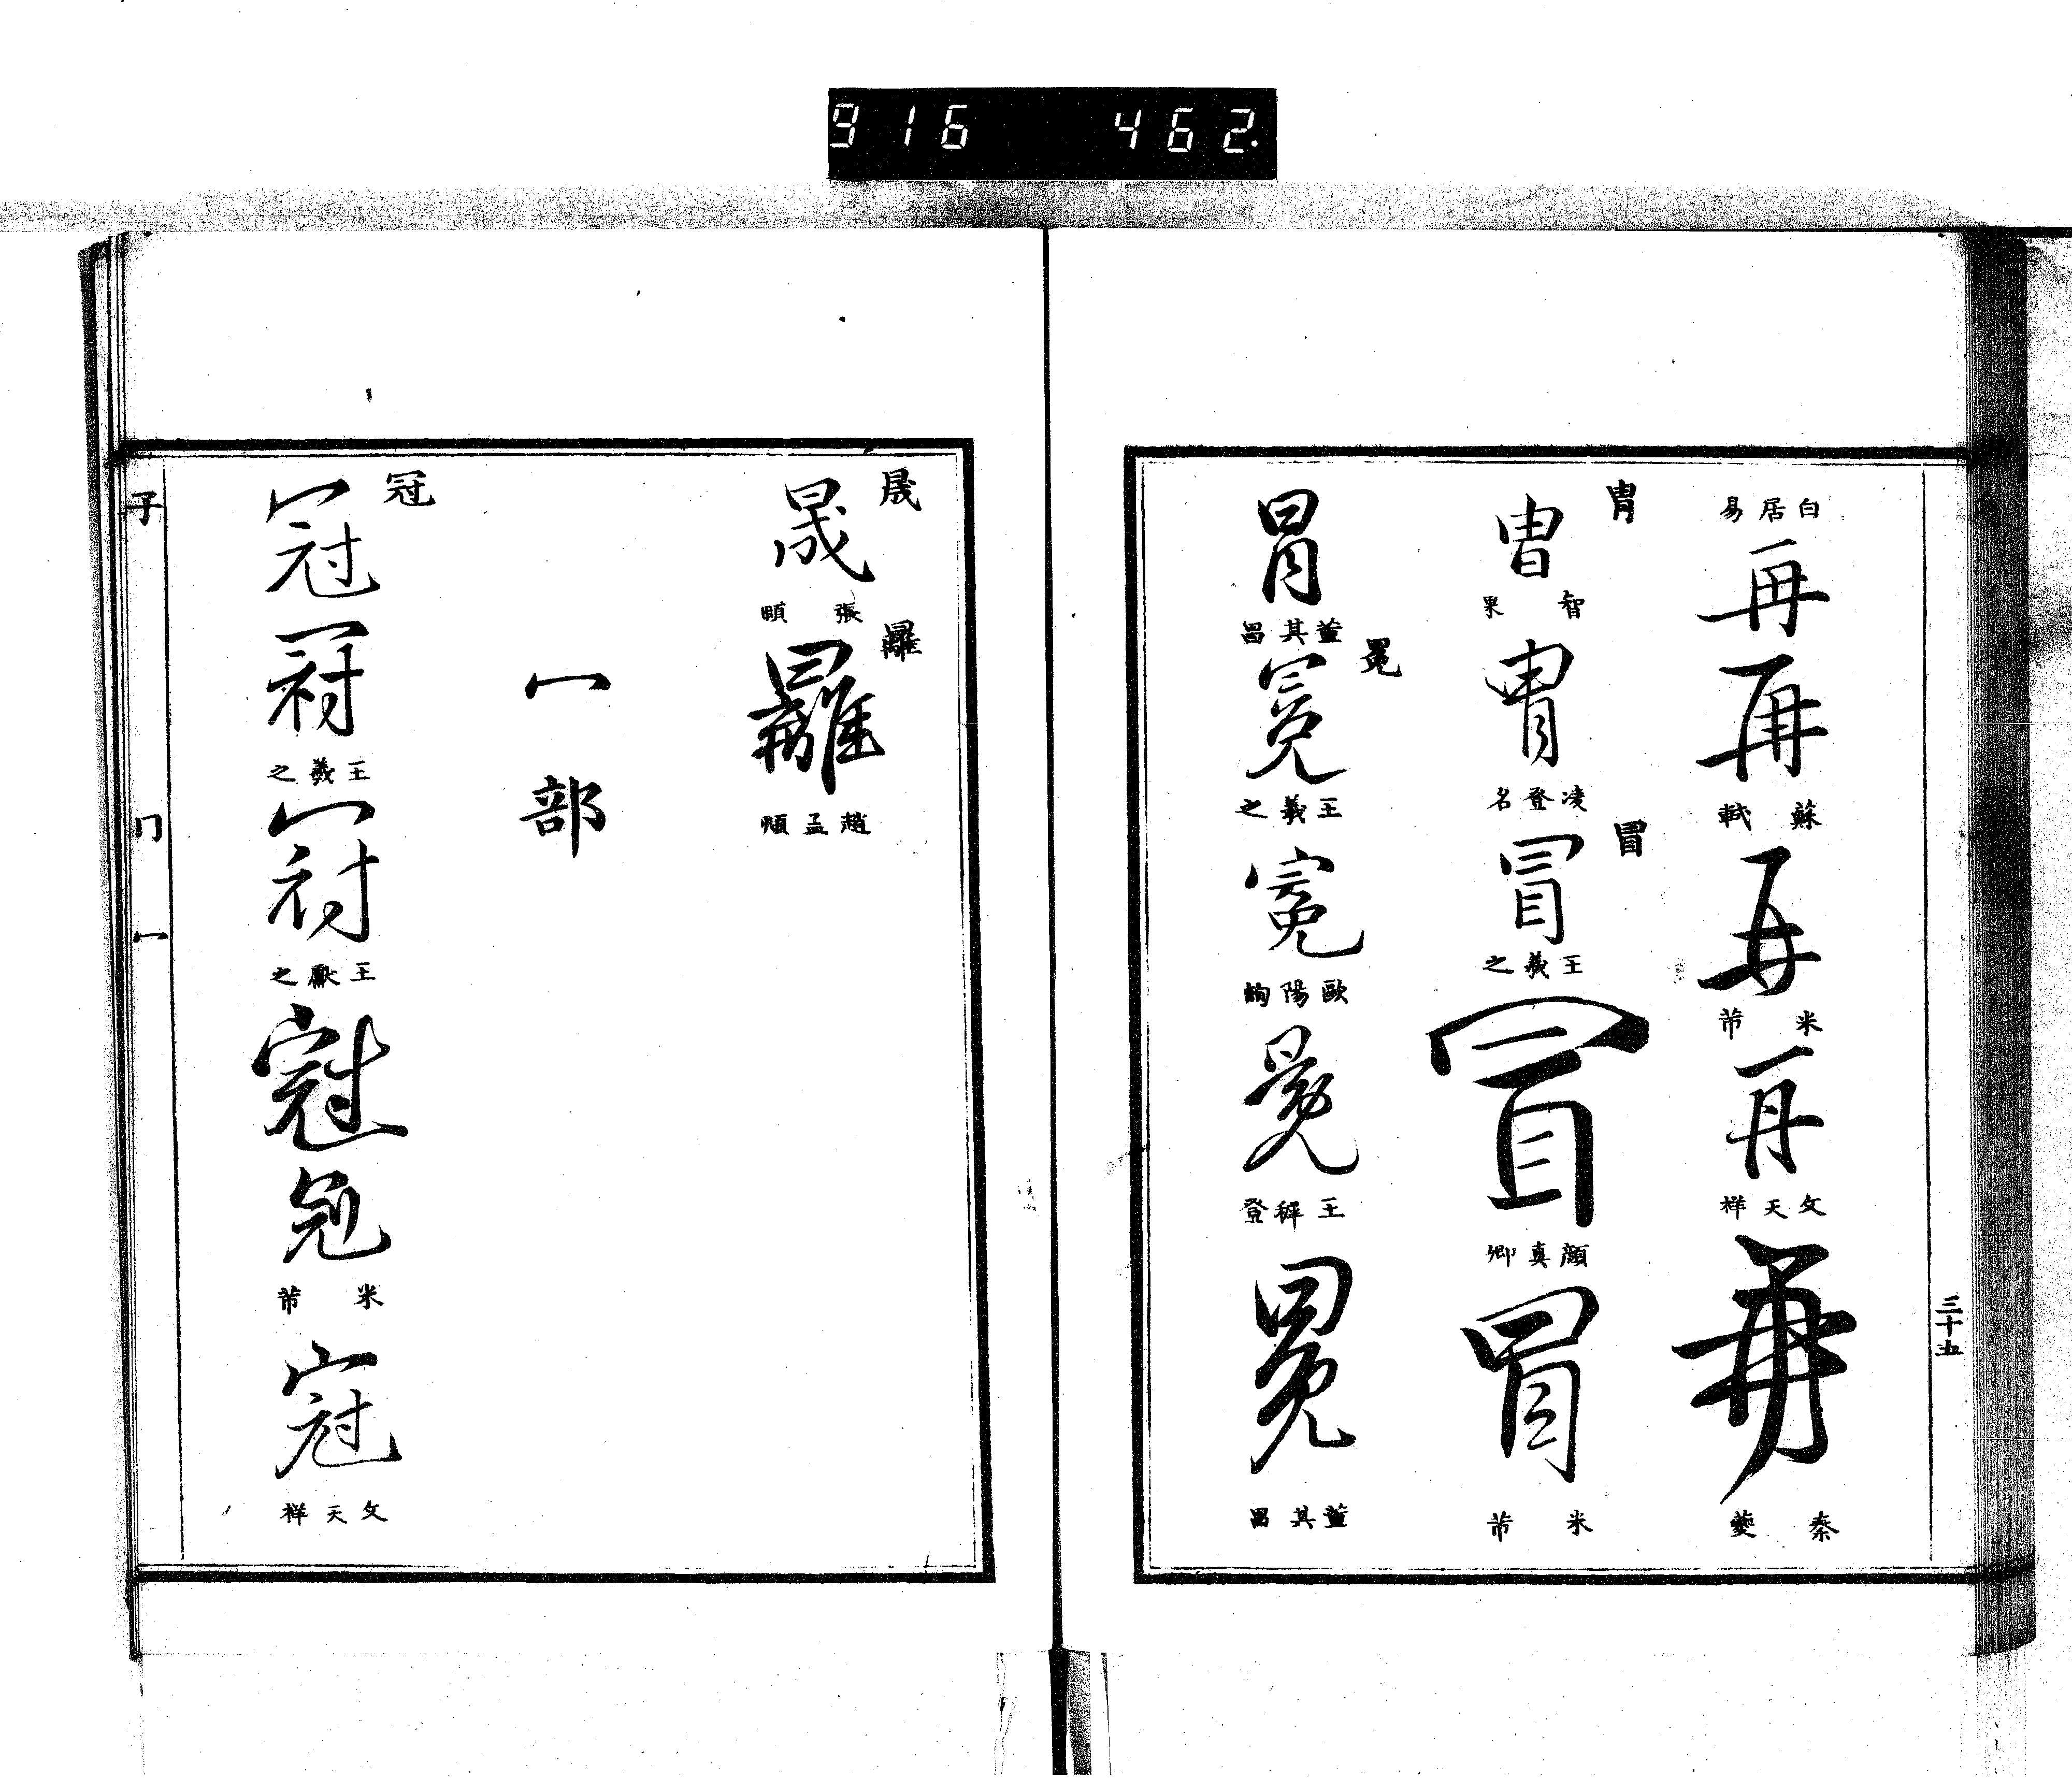 916 462.
三十五
白居易
再
再
蘇軾
再
米芾
再
文天祥
再
秦夔
冑
冑
智果
冑
凌登名
冒
冒
王羲之
冒
顏真卿
冒
米芾
冒
董其昌
冕
冕
王羲之
冕
歐陽詢
冕
王穉登
冕
董其昌
晟
晟
張頤
趙孟頫
冖部
冠
冠
冠
王羲之
冠
王獻之
冠
冠
米芾
冠
文天祥
子 冂 冖